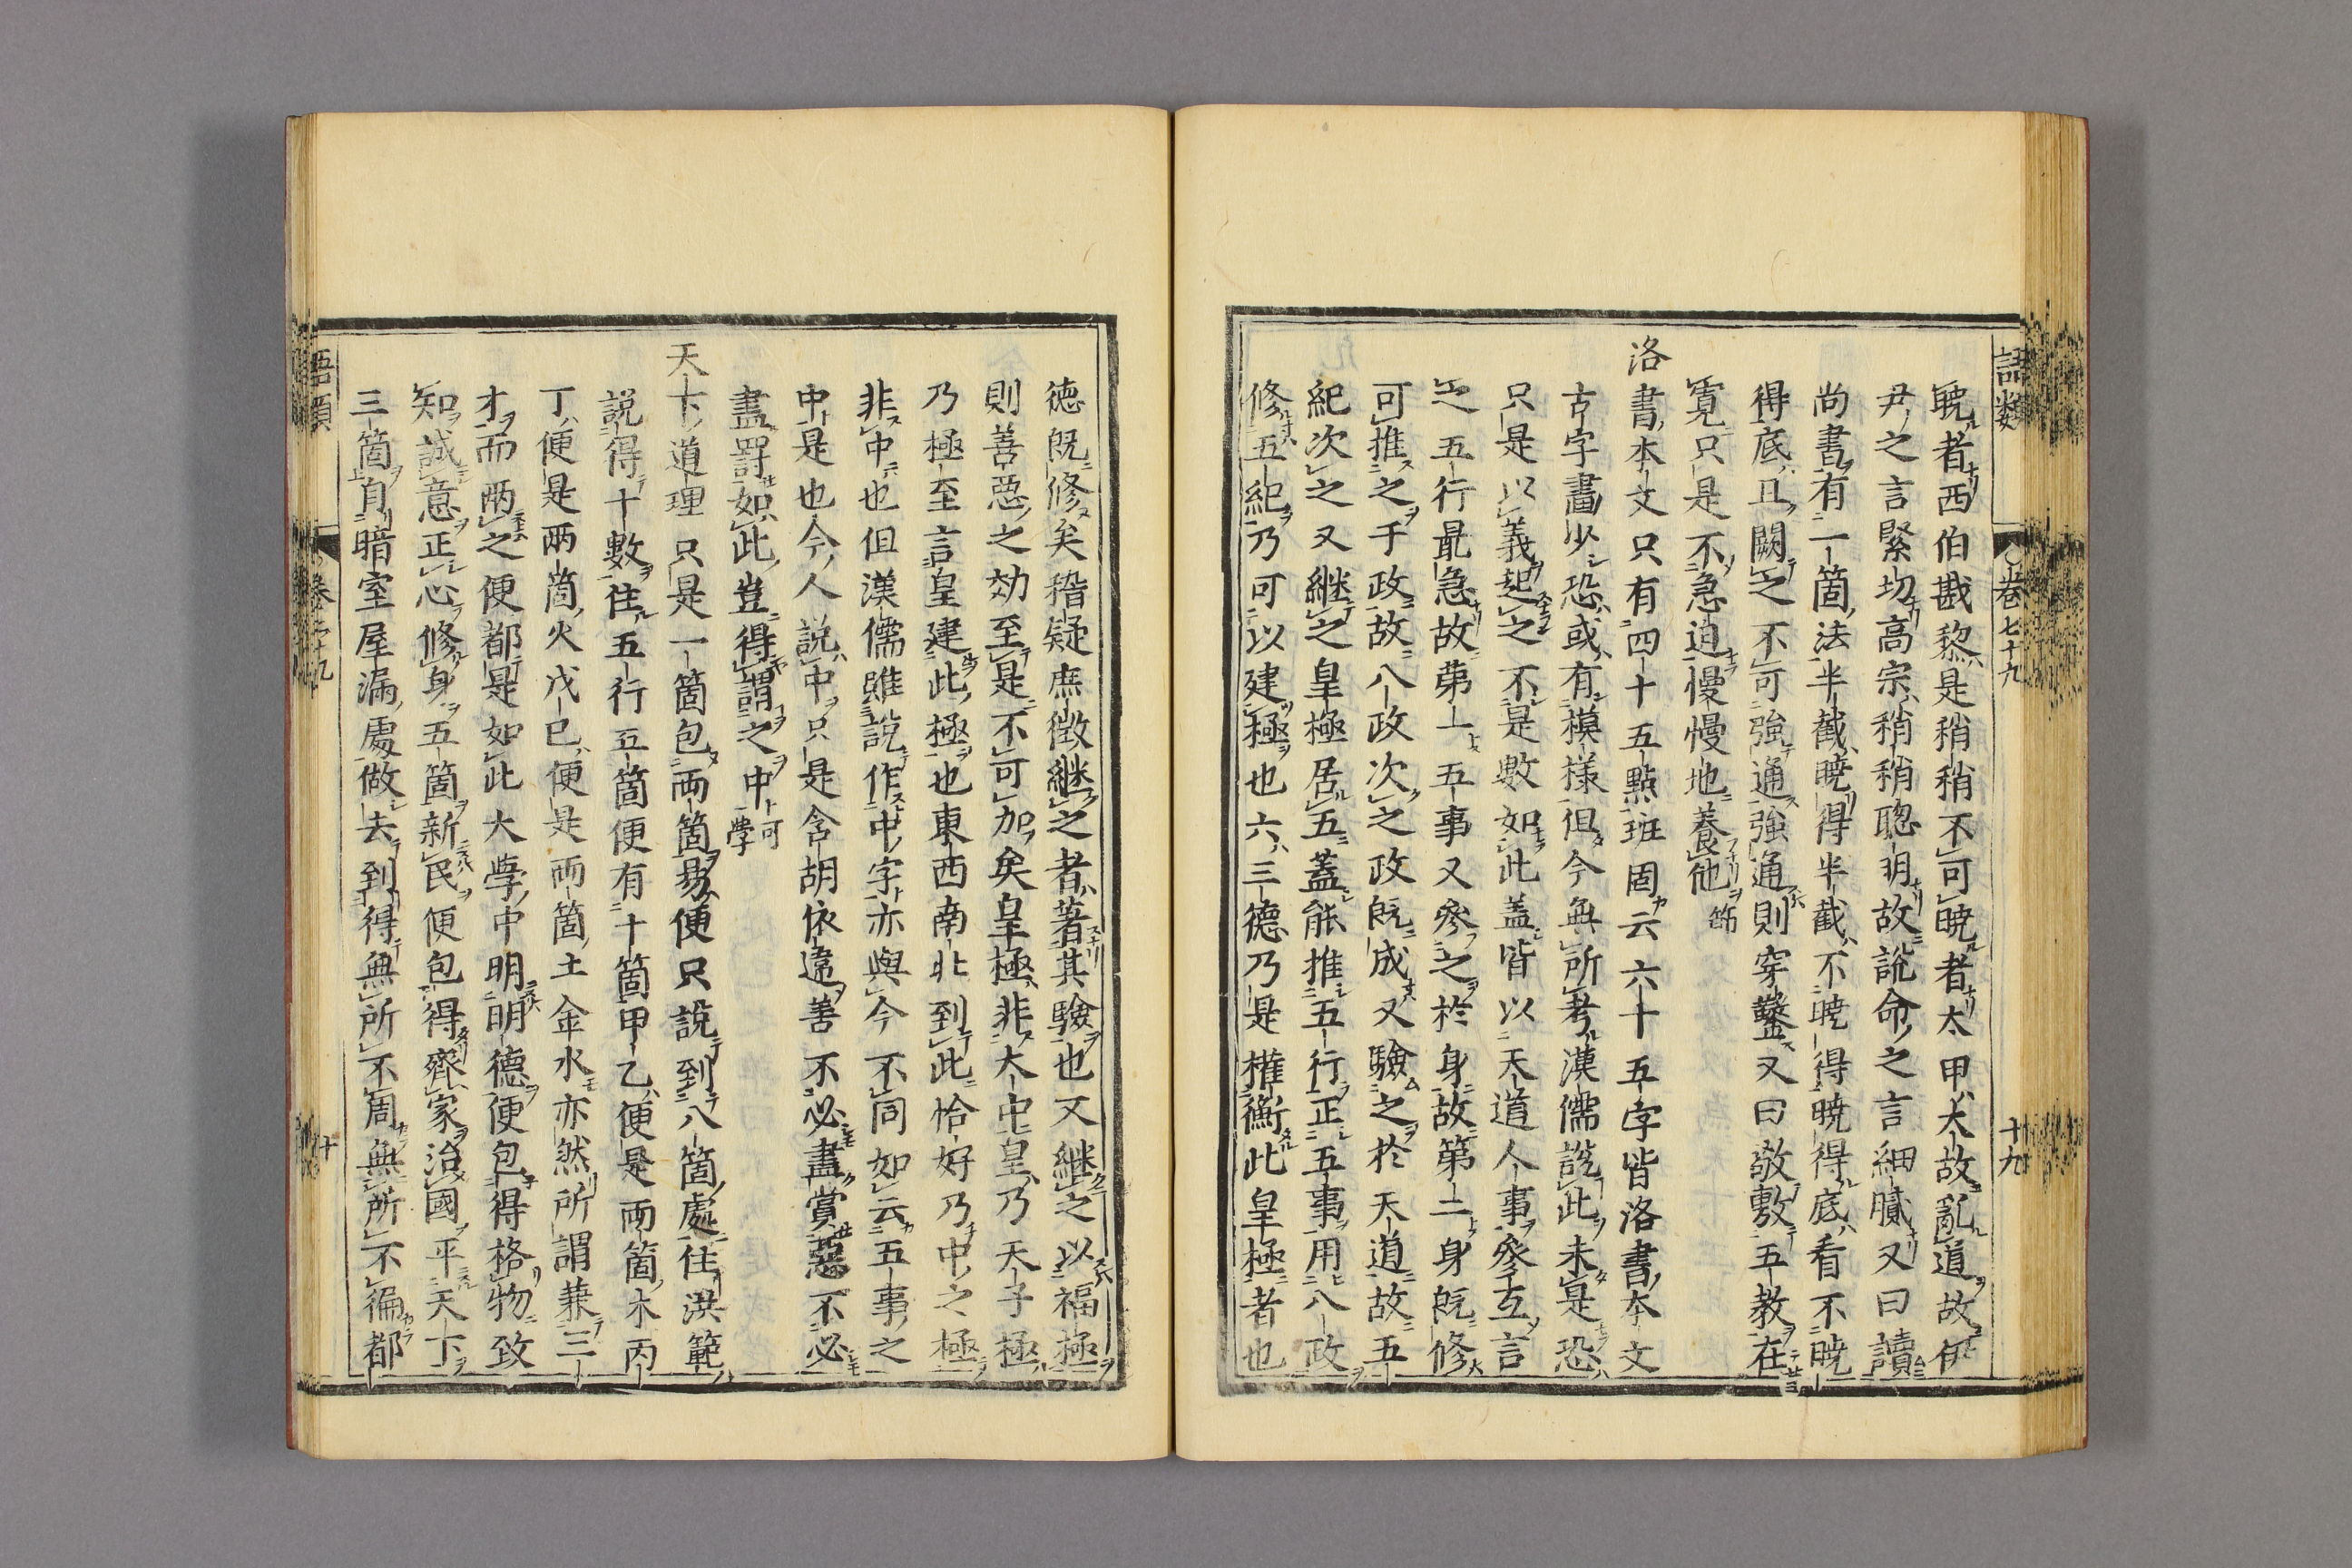 語類 卷七十九 十九
曉者西伯戡黎是稍稍不可曉者太甲大故亂道故伊
尹之言緊切高宗稍稍聰明故說命之言細膩又曰讀
尚書有一箇法半截曉得半截不曉得曉得底看不曉
得底且闕之不可強通強通則穿鑿又曰敬敷五教在
寬只是不急迫慢慢地養他節
洛書本文只有四十五點班固云六十五字皆洛書本文
古字畫少恐或有模樣但今無所考漢儒說此未是恐
只是以義起之不是數如此蓋皆以天道人事參互言
之五行最急故第一五事又參之於身故第二身既修
可推之于政故八政次之政既成又驗之於天道故五
紀次之又繼之皇極居五蓋能推五行正五事用八政
修五紀乃可以建極也六三德乃是權衡此皇極者也
德既修矣稽疑庶徵繼之者著其驗也又繼之以福極
則善惡之効至是不可加矣皇極非大中皇乃天子極
乃極至言皇建此極也東西南北到此恰好乃中之極
非中也但漢儒雖說作中字亦與今不同如云五事之
中是也今人說中只是含胡依違善不必盡賞惡不必
盡罰如此豈得謂之中可學
天下道理只是一箇包兩箇易便只說到八箇處住洪範
說得十數住五行五箇便有十箇甲乙便是兩箇木丙
丁便是兩箇火戊己便是兩箇土金水亦然所謂兼三
才而兩之便都是如此大學中明明德便包得格物致
知誠意正心修身五箇新民便包得齊家治國平天下
三箇自暗室屋漏處做去到得無所不周無所不徧都
語類 卷七十九 十